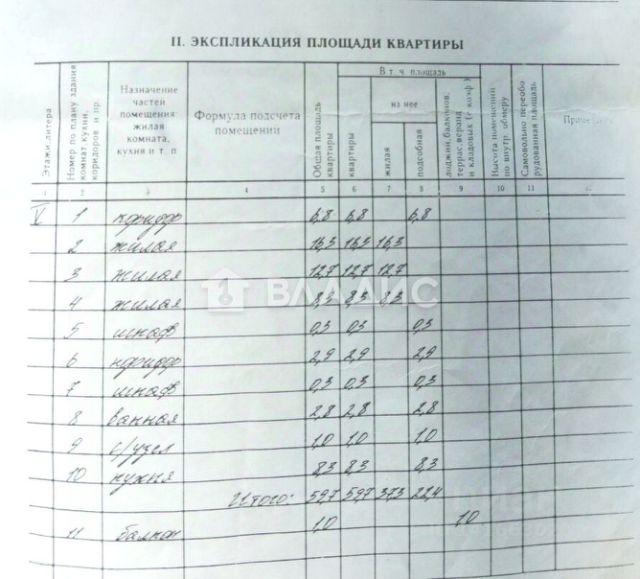 II. ЭКСПЛИКАЦИЯ ПЛОЩАДИ КВАРТИРЫ
Этажи, литера
Номер по плану здания комнат, кухни, коридоров и пр.
Назначение частей помещения: жилая комната, кухня и т. п
Формула подсчета помещении
Общая площадь квартиры
В т. ч. площадь
квартиры
из нее
жилая
подсобная
лоджий, балконов, террас, веранд и кладовых (с коэф.)
Высота помещений по внутр. обмеру
Самовольно переоборудованная площадь
2 3 4 5 6 7 8 9 10 11
V 1 коридор 6,8 6,8 6,8
2 жилая 16,3 16,3 16,3
3 жилая 12,7 12,7 12,7
4 жилая 8,3 8,3 8,3
5 шкаф 0,3 0,3 0,3
6 коридор 2,9 2,9 2,9
7 шкаф 0,3 0,3 0,3
8 ванная 2,8 2,8 2,8
9 с/узел 1,0 1,0 1,0
10 кухня 8,3 8,3 8,3
Итого: 59,7 59,7 37,3 22,4
11 балкон 1,0 1,0
ВЛАДИС